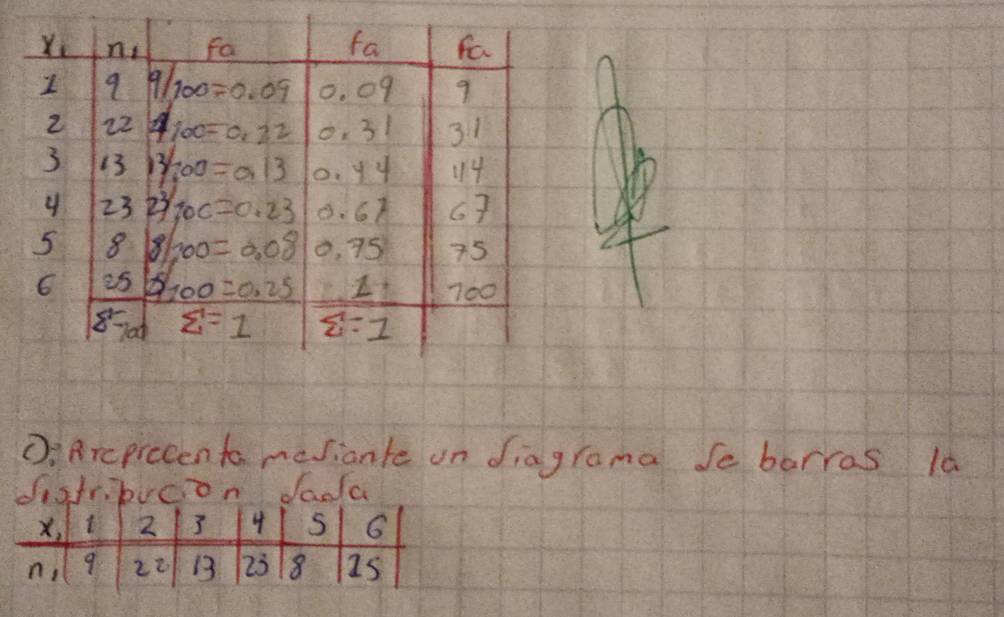 x₁ n₁ Fa fa Fa
1 9 9/100=0.09 0.09 9
2 22 /100=0.22 0.31 31
3 13 13/100=0.13 0.44 44
4 23 23/100=0.23 0.67 67
5 8 8/100=0.08 0.75 75
6 25 /100=0.25 1 100
Σ=100 Σ=1 Σ=1
mediante un diagrama de barras la
distribución dada
x₁ 1 2 3 4 5 6
n₁ 9 22 13 23 8 25